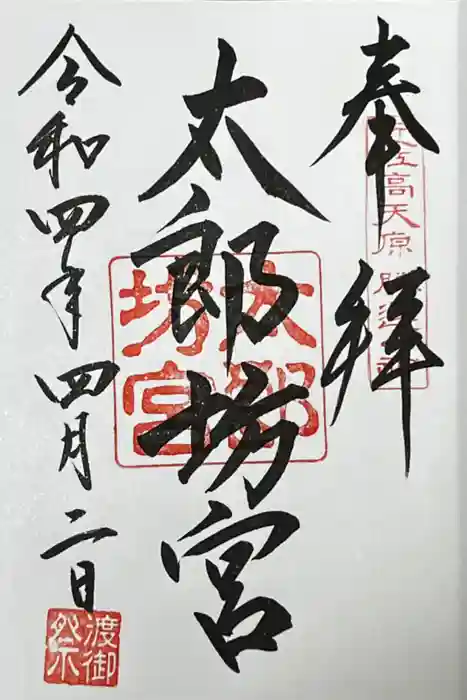 奉拝
太郎坊宮
太郎坊宮
令和四年四月二日
渡御祭